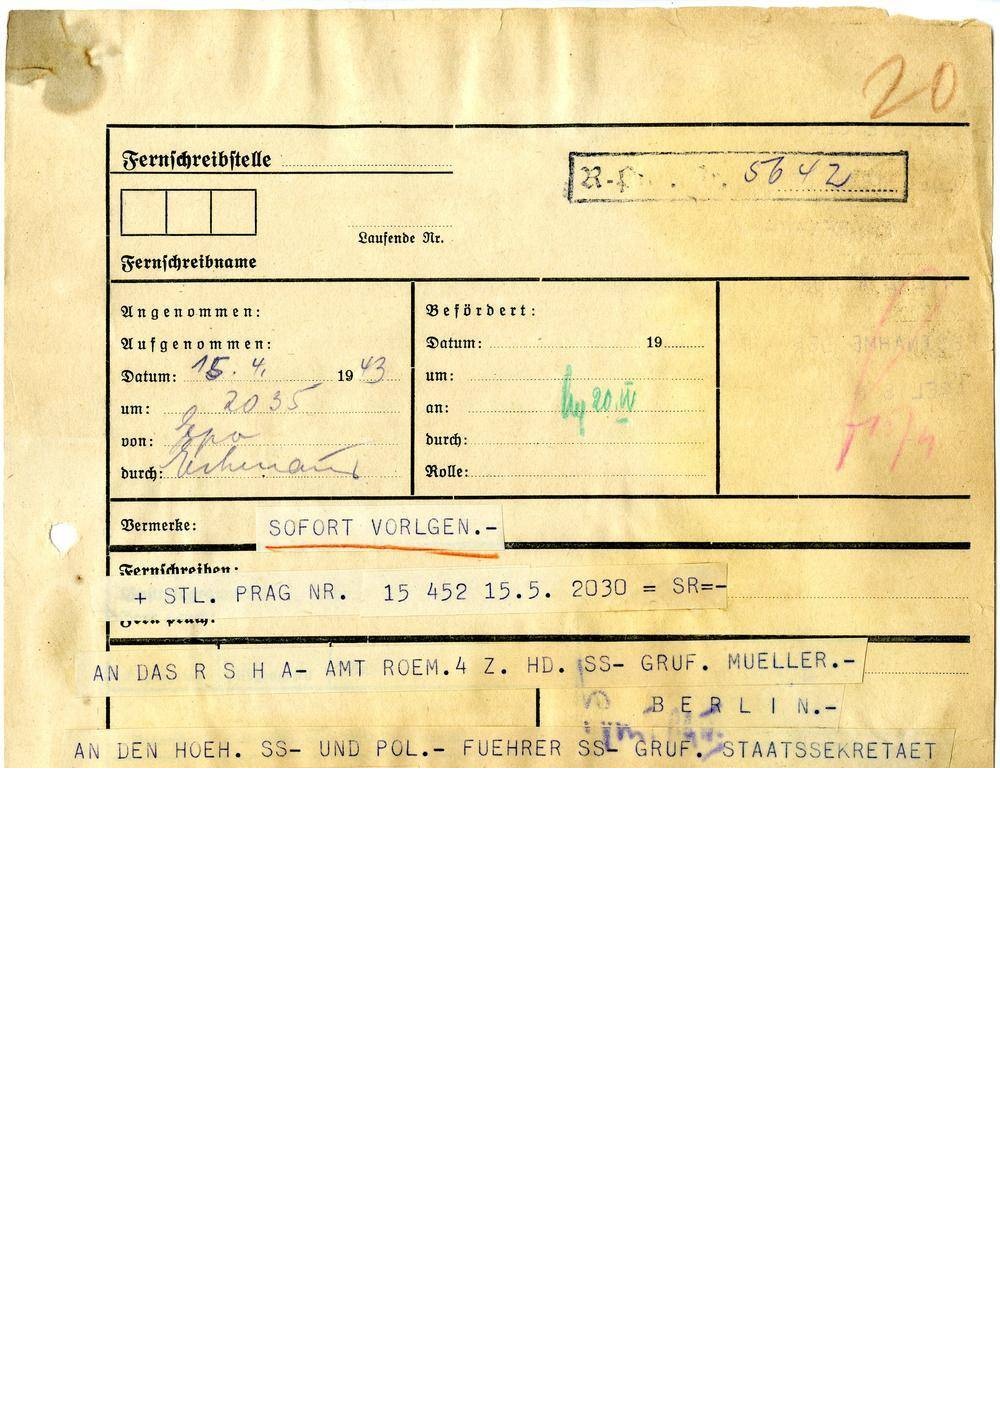 20
Fernschreibstelle
5642
Laufende Nr.
Fernschreibname
Angenommen:
Aufgenommen:
Datum: 15. 4. 1943
um: 2035
von:
durch:
Befördert:
Datum: 19
um:
an: 20.IV
durch:
Rolle:
Vermerke: SOFORT VORLGEN.-
Fernschreiben:
+ STL. PRAG NR. 15 452 15.5. 2030 = SR=-
AN DAS R S H A- AMT ROEM.4 Z. HD. SS- GRUF. MUELLER.-
B E R L I N.-
AN DEN HOEH. SS- UND POL.- FUEHRER SS- GRUF. STAATSSEKRETAET